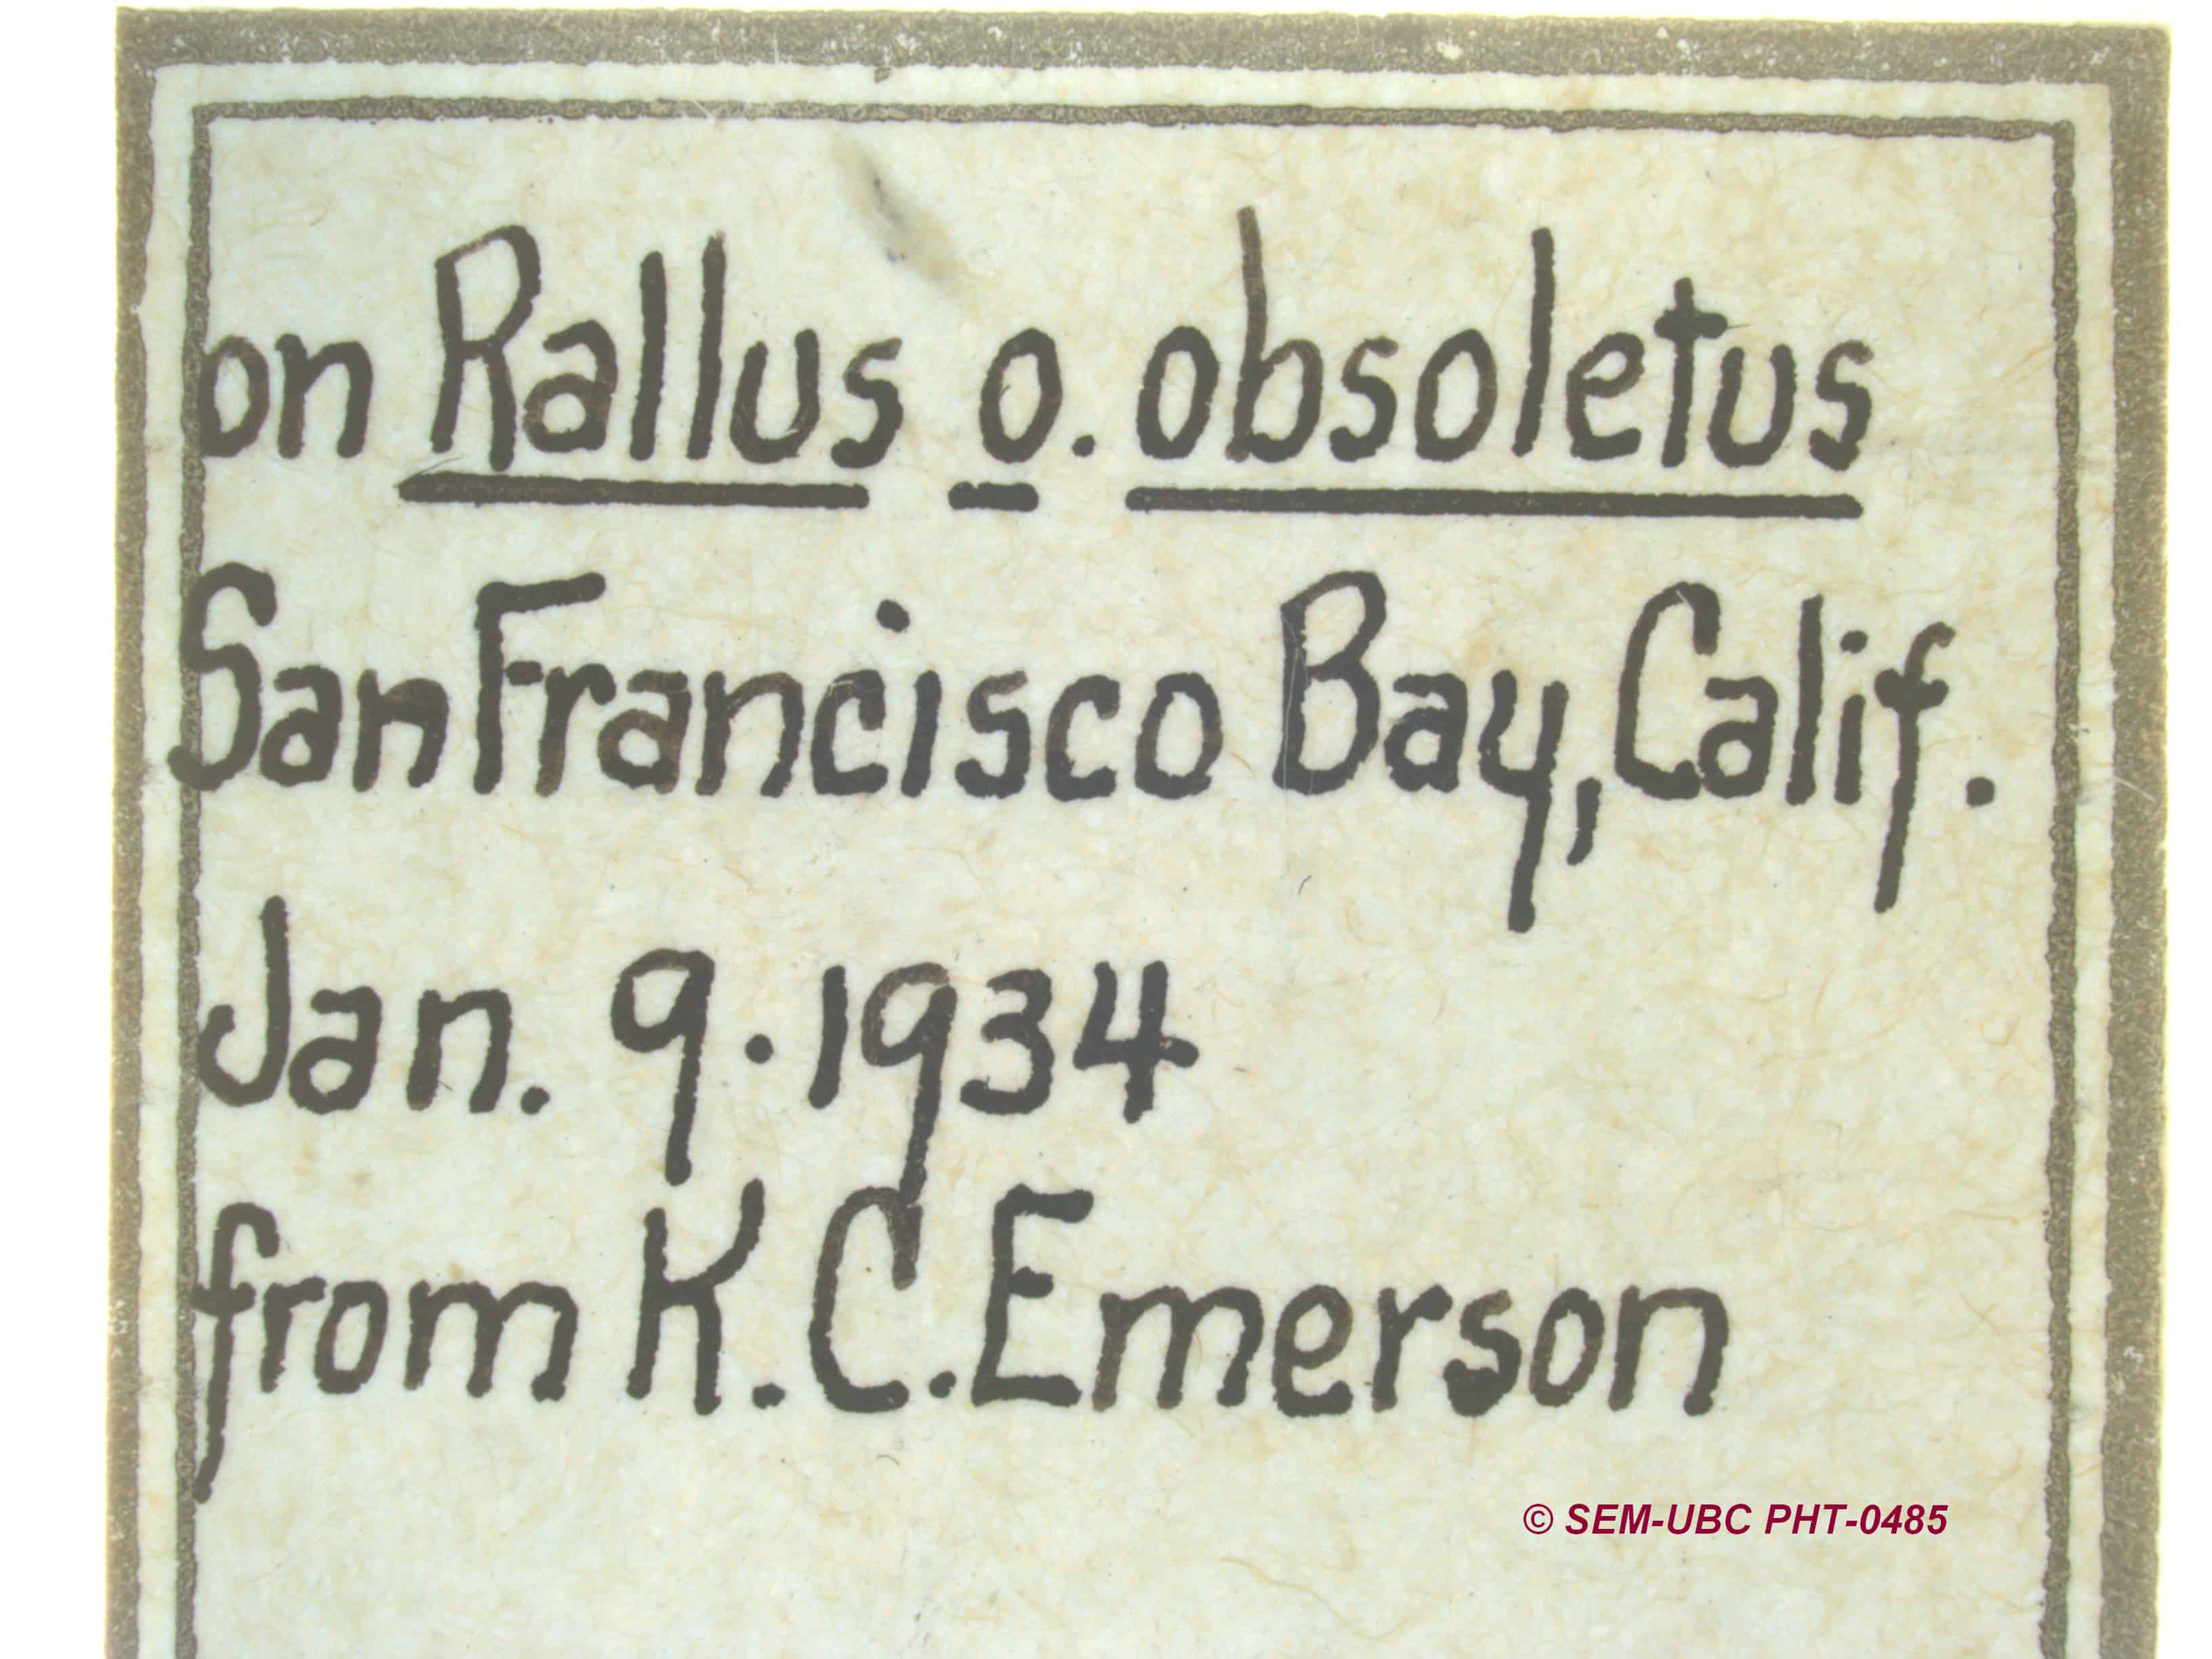 on Rallus o. obsoletus
San Francisco Bay, Calif.
Jan. 9 · 1934
from K. C. Emerson
© SEM-UBC PHT-0485